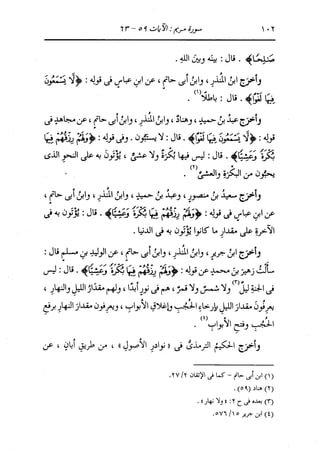 ١٠٢ سورة مريم : الآيات ٥٩ - ٦٣
صَٰلِحًا﴾ . قال : بينه وبين اللهِ .
وأخرَج ابنُ المنذرِ ، وابنُ أبى حاتمٍ ، عن ابنِ عباسٍ فى قولِه : ﴿لَّا يَسْمَعُونَ
فِيهَا لَغْوًا﴾ . قال : باطلًا(١) .
وأخرَج عبدُ بنُ حميدٍ ، وهنادٌ ، وابنُ المنذرِ ، وابنُ أبى حاتمٍ ، عن مجاهدٍ فى
قولِه : ﴿لَّا يَسْمَعُونَ فِيهَا لَغْوًا﴾ . قال : لا يستبُّون . وفى قولِه : ﴿وَلَهُمْ رِزْقُهُمْ فِيهَا
بُكْرَةً وَعَشِيًّا﴾ . قال : ليس فيها بُكرةٌ ولا عشىٌّ ، يُؤْتَون به على النحوِ الذى
يحبُّون من البكرةِ والعشىِّ(٢) .
وأخرَج سعيدُ بنُ منصورٍ ، وعبدُ بنُ حميدٍ ، وابنُ المنذرِ ، وابنُ أبى حاتمٍ ،
عن ابنِ عباسٍ فى قولِه : ﴿وَلَهُمْ رِزْقُهُمْ فِيهَا بُكْرَةً وَعَشِيًّا﴾ . قال : يُؤْتَون به فى
الآخرةِ على مقدارِ ما كانوا يُؤْتَون به فى الدنيا .
وأخرَج ابنُ جريرٍ ، وابنُ المنذرِ ، وابنُ أبى حاتمٍ ، عن الوليدِ بنِ مسلمٍ قال :
سألتُ زهيرَ بنَ محمدٍ عن قولِه : ﴿وَلَهُمْ رِزْقُهُمْ فِيهَا بُكْرَةً وَعَشِيًّا﴾ . قال : ليس
فى الجنةِ ليلٌ(٣) ولا شمسٌ ولا قمرٌ ، هم فى نورٍ أبدًا ، ولهم مقدارُ الليلِ والنهارِ ،
يعرِفون مقدارَ الليلِ بإرخاءِ الحُجُبِ وإغلاقِ الأبوابِ ، ويعرِفون مقدارَ النهارِ برفعِ
الحُجُبِ وفتحِ الأبوابِ(٤) .
وأخرَج الحكيمُ الترمذىُّ فى « نوادرِ الأصولِ » ، من طريقِ أبانٍ ، عن
(١) ابن أبى حاتم - كما فى الإتقان ٢٧/٢ .
(٢) هناد (٥٩) .
(٣) بعده فى ح ٢ : « ولا نهار » .
(٤) ابن جرير ٥٧٦/١٥ .